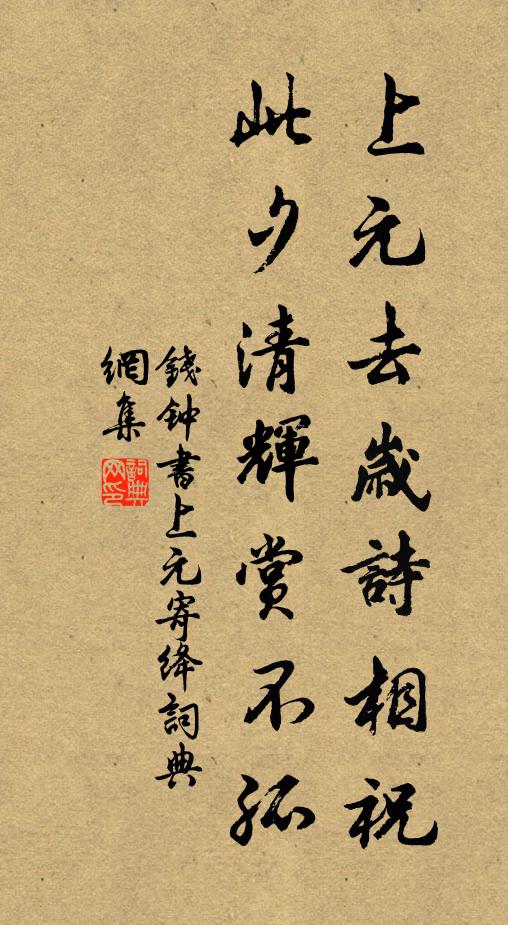 上元去歲詩相祝
此夕清輝賞不孤
錢钟書上元寄绛詞典
網集
詞典
网印